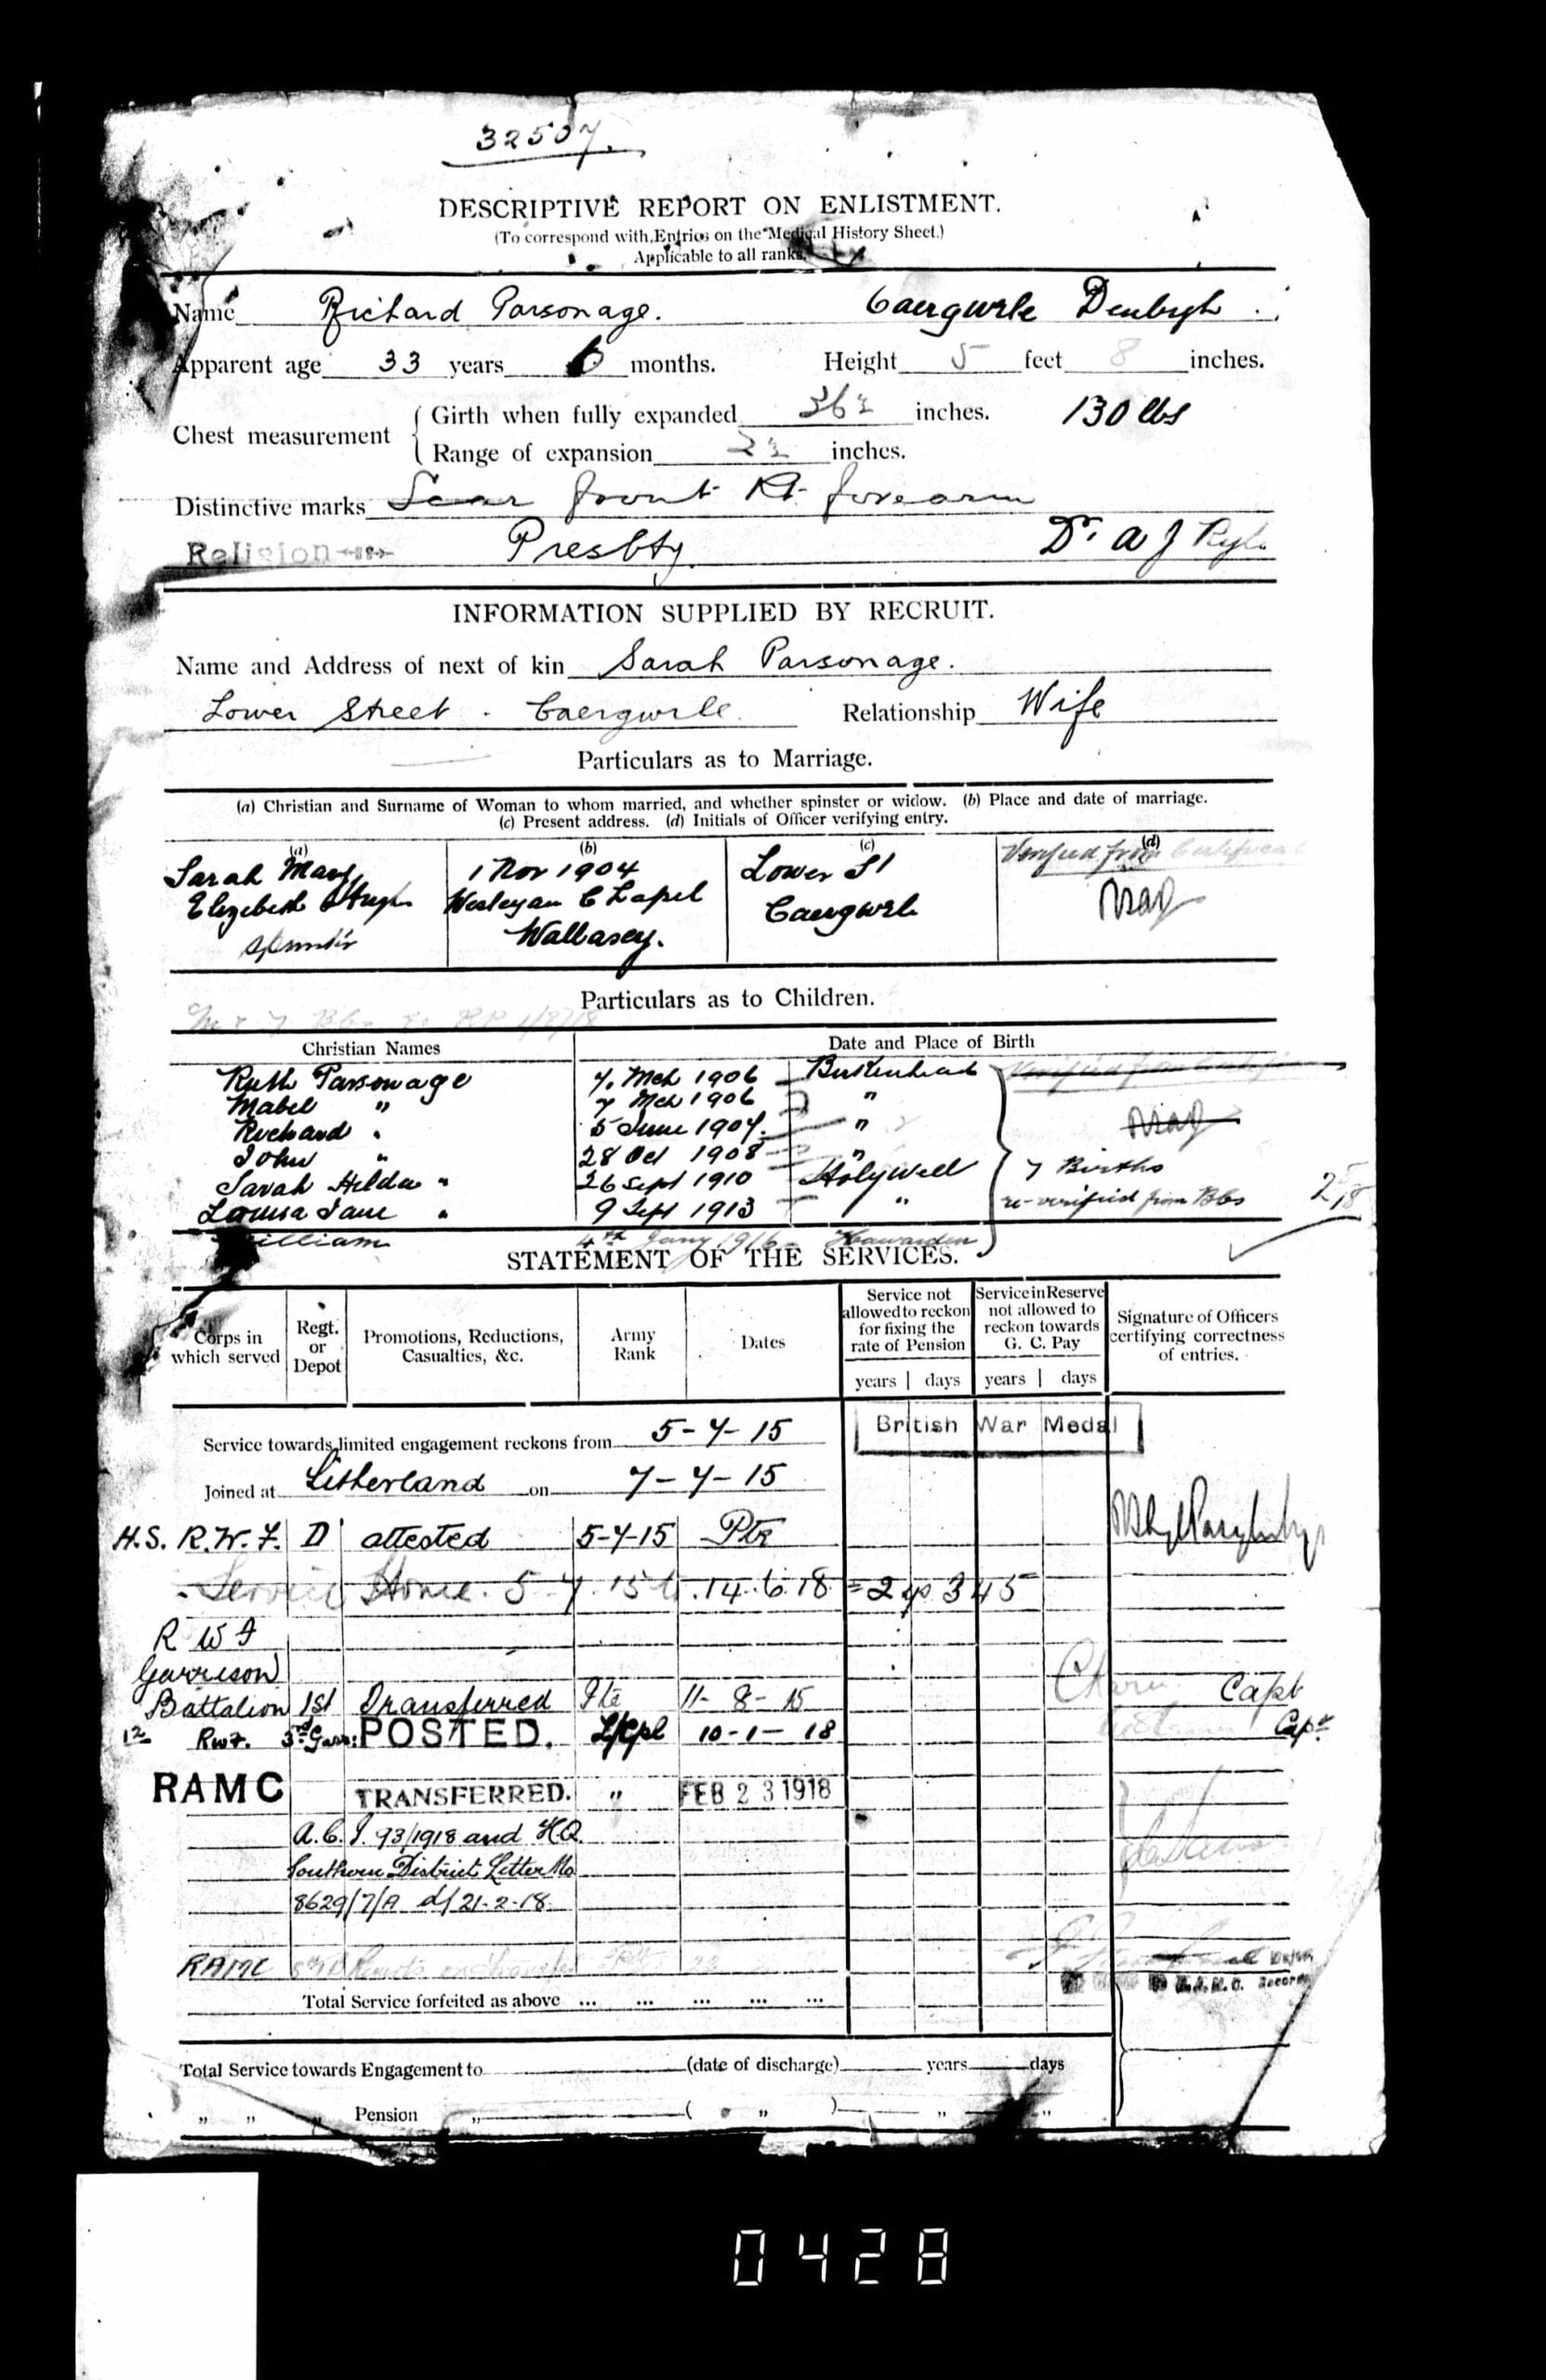 32507.
DESCRIPTIVE REPORT ON ENLISTMENT.
(To correspond with Entries on the Medical History Sheet.)
Applicable to all ranks.
Name Richard Parsonage. Caergwrle Denbigh
Apparent age 33 years 6 months. Height 5 feet 8 inches.
Chest measurement { Girth when fully expanded 36½ inches. 130 lbs
Range of expansion 2½ inches.
Distinctive marks Scar front Rt forearm
Religion Presbty. Dr. A J
INFORMATION SUPPLIED BY RECRUIT.
Name and Address of next of kin Sarah Parsonage.
Lower Street - Caergwrle Relationship Wife
Particulars as to Marriage.
(a) Christian and Surname of Woman to whom married, and whether spinster or widow. (b) Place and date of marriage.
(c) Present address. (d) Initials of Officer verifying entry.
(a) (b) (c) (d)
Sarah Mary 1 Nov 1904 Lower St Verified from Certificate
Elizebeth Wesleyan Chapel Caergwrle
Wallasey.
Particulars as to Children.
Christian Names Date and Place of Birth
Ruth Parsonage 7. Mch 1906 Birkenhead
Mabel " 7 Mch 1906 "
Richard " 5 June 1907. "
John " 28 Oct 1908 " 7 Births
Sarah Hilda " 26 Sept 1910 Holywell re-verified from Bbs
Louisa Jane " 9 Sept 1913 "
William 4th Jany 1916 Hawarden
STATEMENT OF THE SERVICES.
Corps in which served Regt. or Depot Promotions, Reductions, Casualties, &c. Army Rank Dates Service not allowed to reckon for fixing the rate of Pension Service in Reserve not allowed to reckon towards G. C. Pay Signature of Officers certifying correctness of entries.
years days years days
British War Medal
Service towards limited engagement reckons from 5-7-15
Joined at Litherland on 7-7-15
H.S. R.W.F. D attested 5-7-15 Pte
Service Home. 5 7 15 to 14.6.18 = 2 yrs 345
R W F
Garrison
Battalion 1st Transferred Pte 11-8-15 Capt
Rwf. 3rd Garr: POSTED. L/Cpl 10-1-18 Capt
RAMC TRANSFERRED. " FEB 23 1918
A.C.I. 93/1918 and HQ
Southern District Letter No
8629/7/A d/ 21-2-18.
RAMC
R.A.M.C. Records
Total Service forfeited as above ... ... ... ... ...
Total Service towards Engagement to (date of discharge) years days
" " " Pension " ( " ) " "
0428